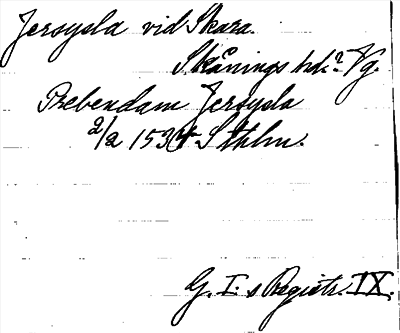 Jersysla vid Skara.
Skånings hd.? Vg.
Prebendam Jersysla
2/2 1534 Sthlm.
G. I:s Registr. IX.